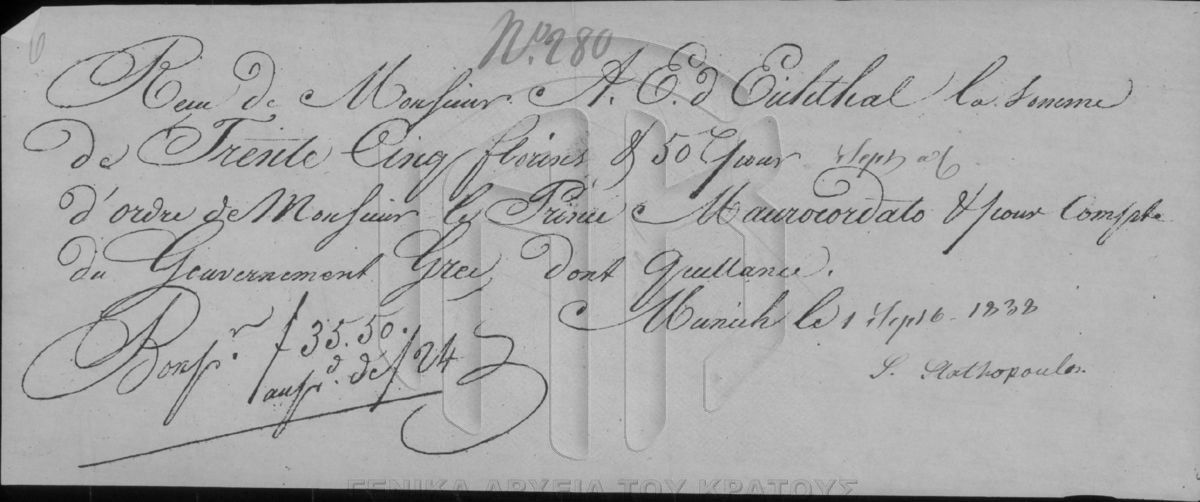 No. 280
Reçu de Monsieur A. E. d'Eichthal la somme
de Trente Cinq florins & 50 pour Sept
d'ordre de Monsieur le Prince Maurocordato & pour Compte
du Gouvernement Grec, dont Quittance.
Munich le 1 Sept 1838
Bon pr f 35.50.
au pd. de f 24
S. Stathopoulos
ΓΕΝΙΚΑ ΑΡΧΕΙΑ ΤΟΥ ΚΡΑΤΟΥΣ